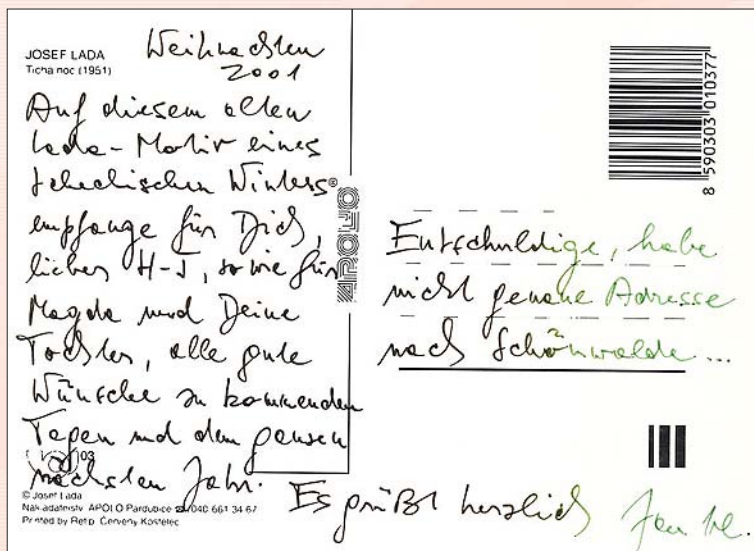 JOSEF LADA
Tichá noc (1951)
Weihnachten
2001
Auf diesem alten
Lada-Motiv eines
tschechischen Winters
empfange für Dich,
lieber H-J, sowie für
Magda und Deine
Tochter, alle gute
Wünsche zu kommenden
Tagen und dem ganzen
nächsten Jahr.
Es grüßt herzlich Jan
APOLO®
8 590303 010377
Entschuldige, habe
nicht genaue Adresse
nach Schönwalde...
03
© Josef Lada
Nakladatelství APOLO Pardubice ☎ 040 661 34 67
Printed by Retip Červený Kostelec